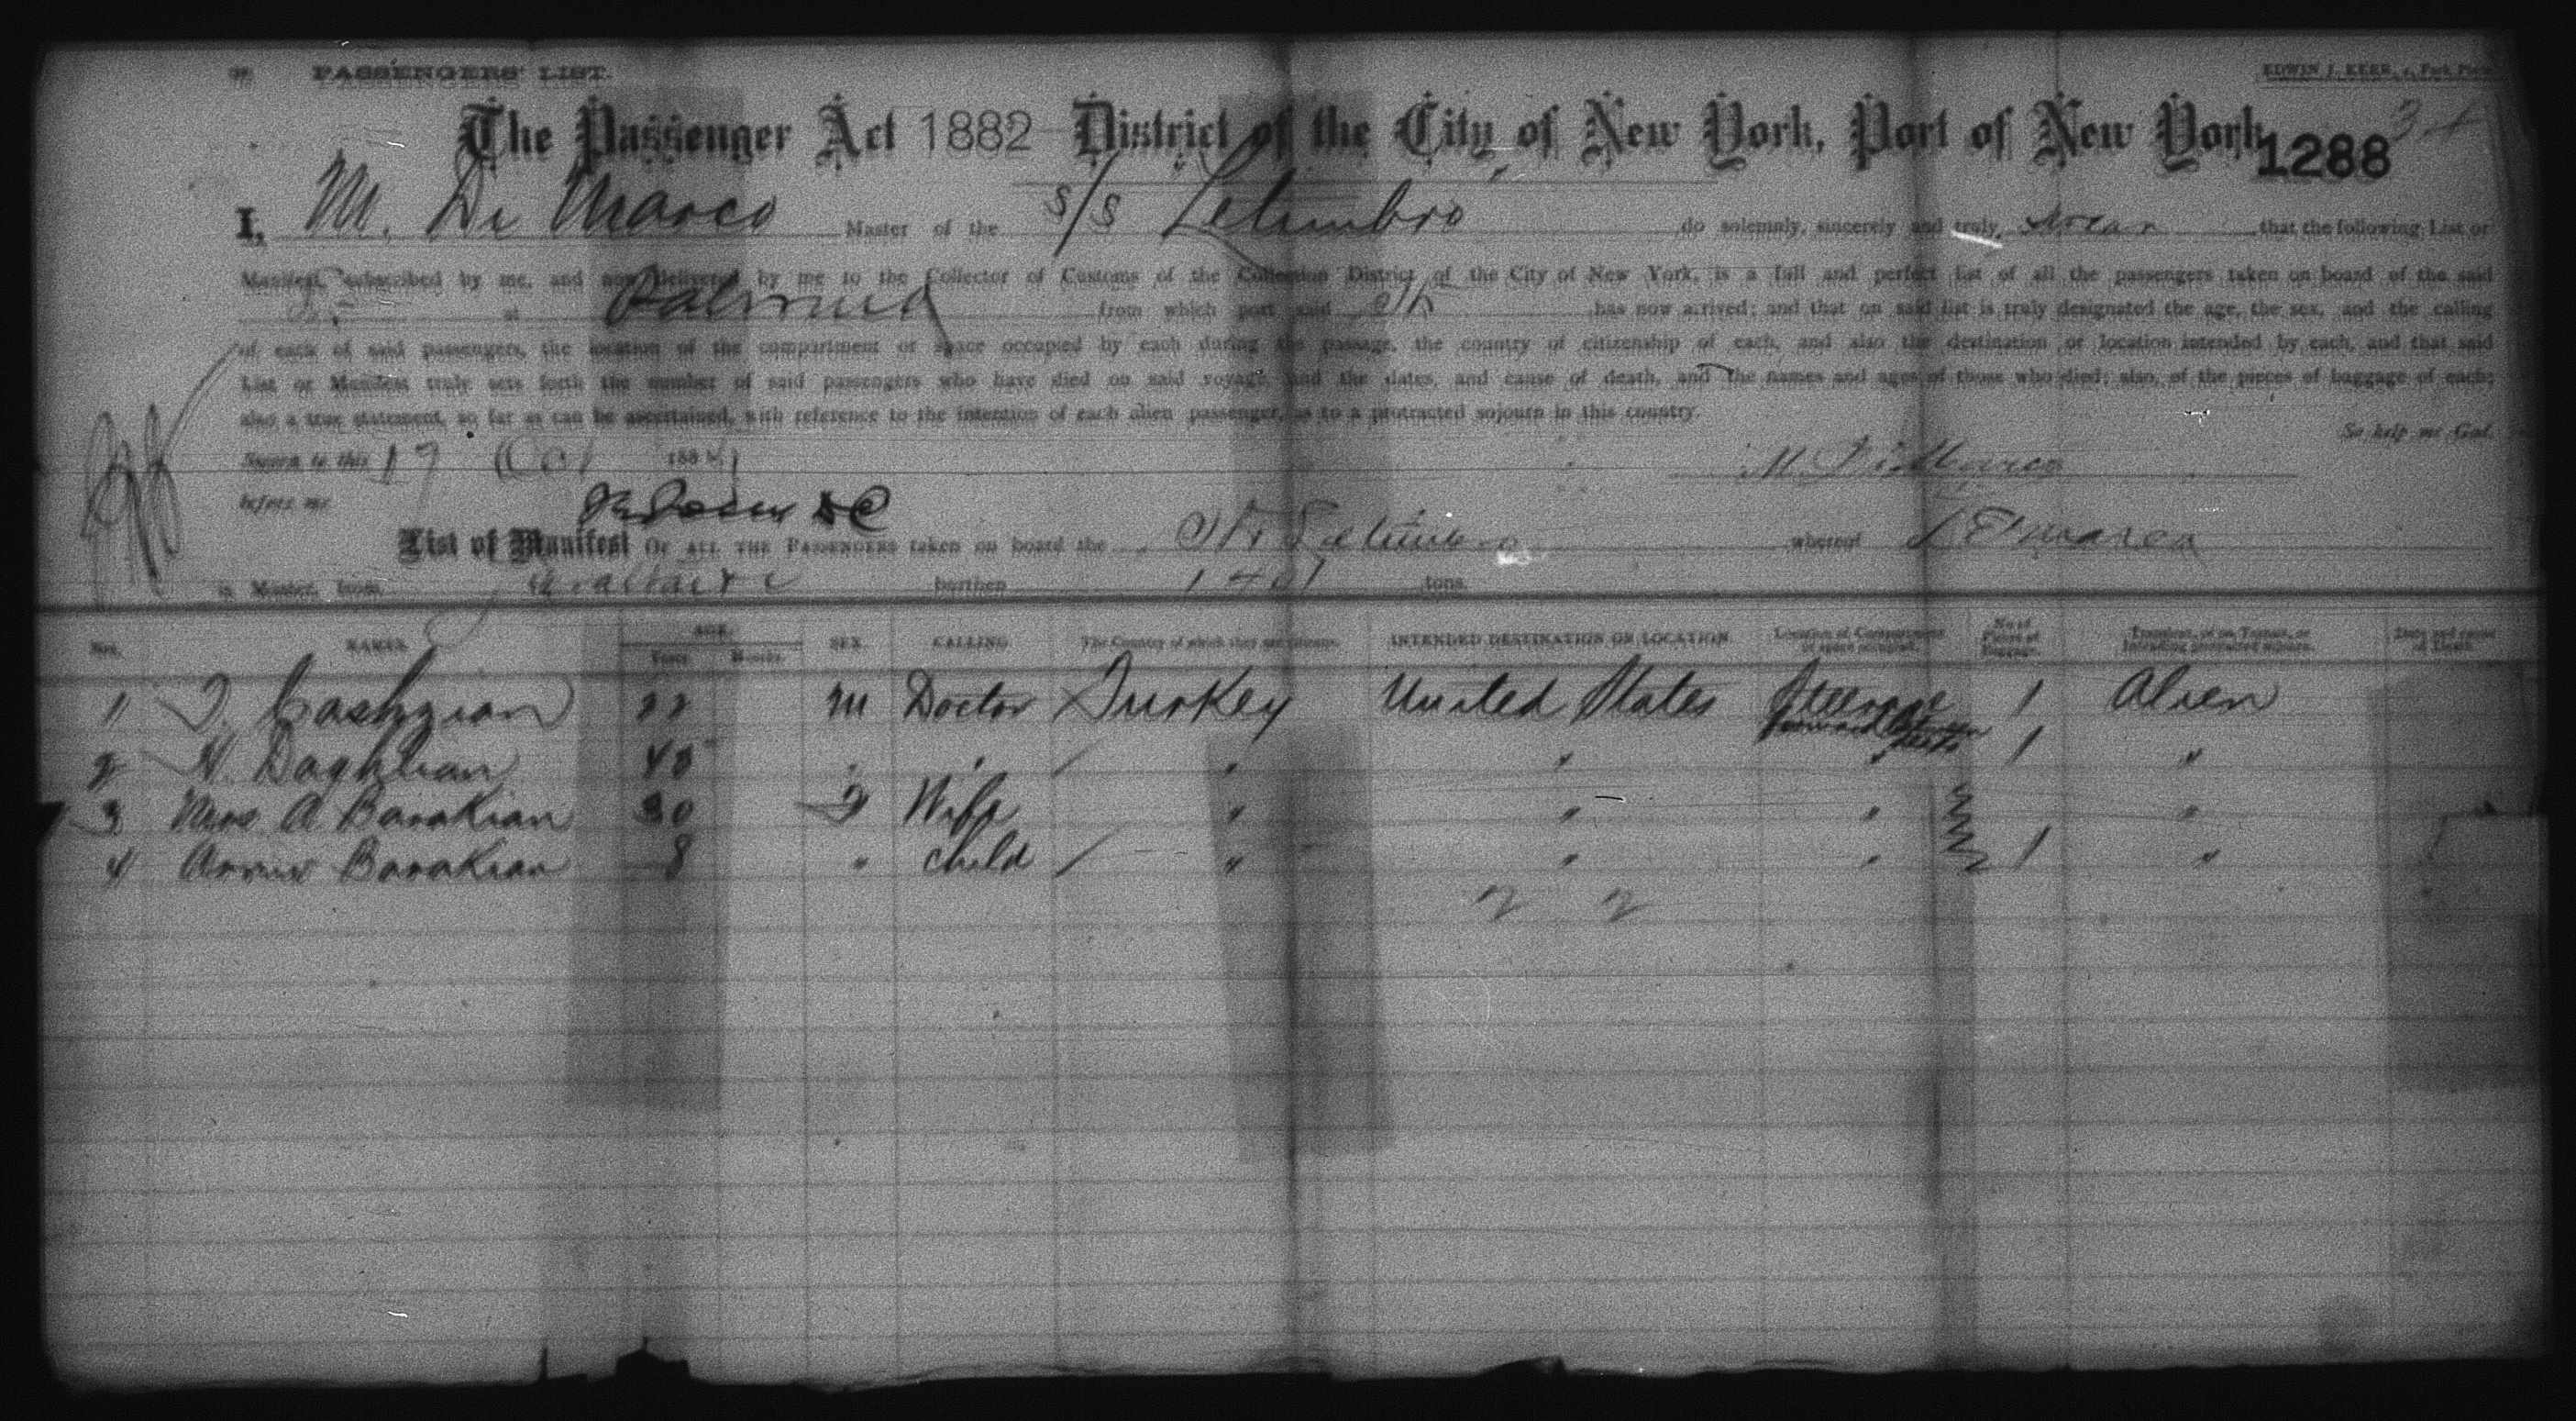 PASSENGERS' LIST. EDWIN J. KERR,
The Passenger Act 1882 District of the City of New York, Port of New York
1288
I, M. Di Marco Master of the S/S Letimbro do solemnly, sincerely and truly swear that the following List or
Manifest, subscribed by me, and now delivered by me to the Collector of Customs of the Collection District of the City of New York, is a full and perfect list of all the passengers taken on board of the said
at Palermo from which port said Str has now arrived; and that on said list is truly designated the age, the sex, and the calling
of each of said passengers, the location of the compartment or space occupied by each during the passage, the country of citizenship of each, and also the destination or location intended by each, and that said
List or Manifest truly sets forth the number of said passengers who have died on said voyage, and the dates, and cause of death, and the names and ages of those who died; also, of the pieces of baggage of each;
also a true statement, so far as can be ascertained, with reference to the intention of each alien passenger, as to a protracted sojourn in this country.
So help me God.
Sworn to this 17 Oct 188 M Di Marco
before me
List or Manifest OF ALL THE PASSENGERS taken on board the Str Letimbro whereof
is Master, from Gibraltar burthen 1401 tons.
Nos. NAMES. AGE. Years. Months. SEX. CALLING. The Country of which they are citizens. INTENDED DESTINATION OR LOCATION. Location of Compartment or space occupied. No of Pieces of Baggage. Transient, or in Transit, or intending protracted sojourn. Date and cause of Death.
1 Cashgian 22 M Doctor Turkey United States Steerage forward between decks 1 Alien
2 N. Daghlian 40 " " " " " 1 "
3 Mrs A Barakian 30 F Wife " " " "
4 Barakian 8 " child " " " 1 "